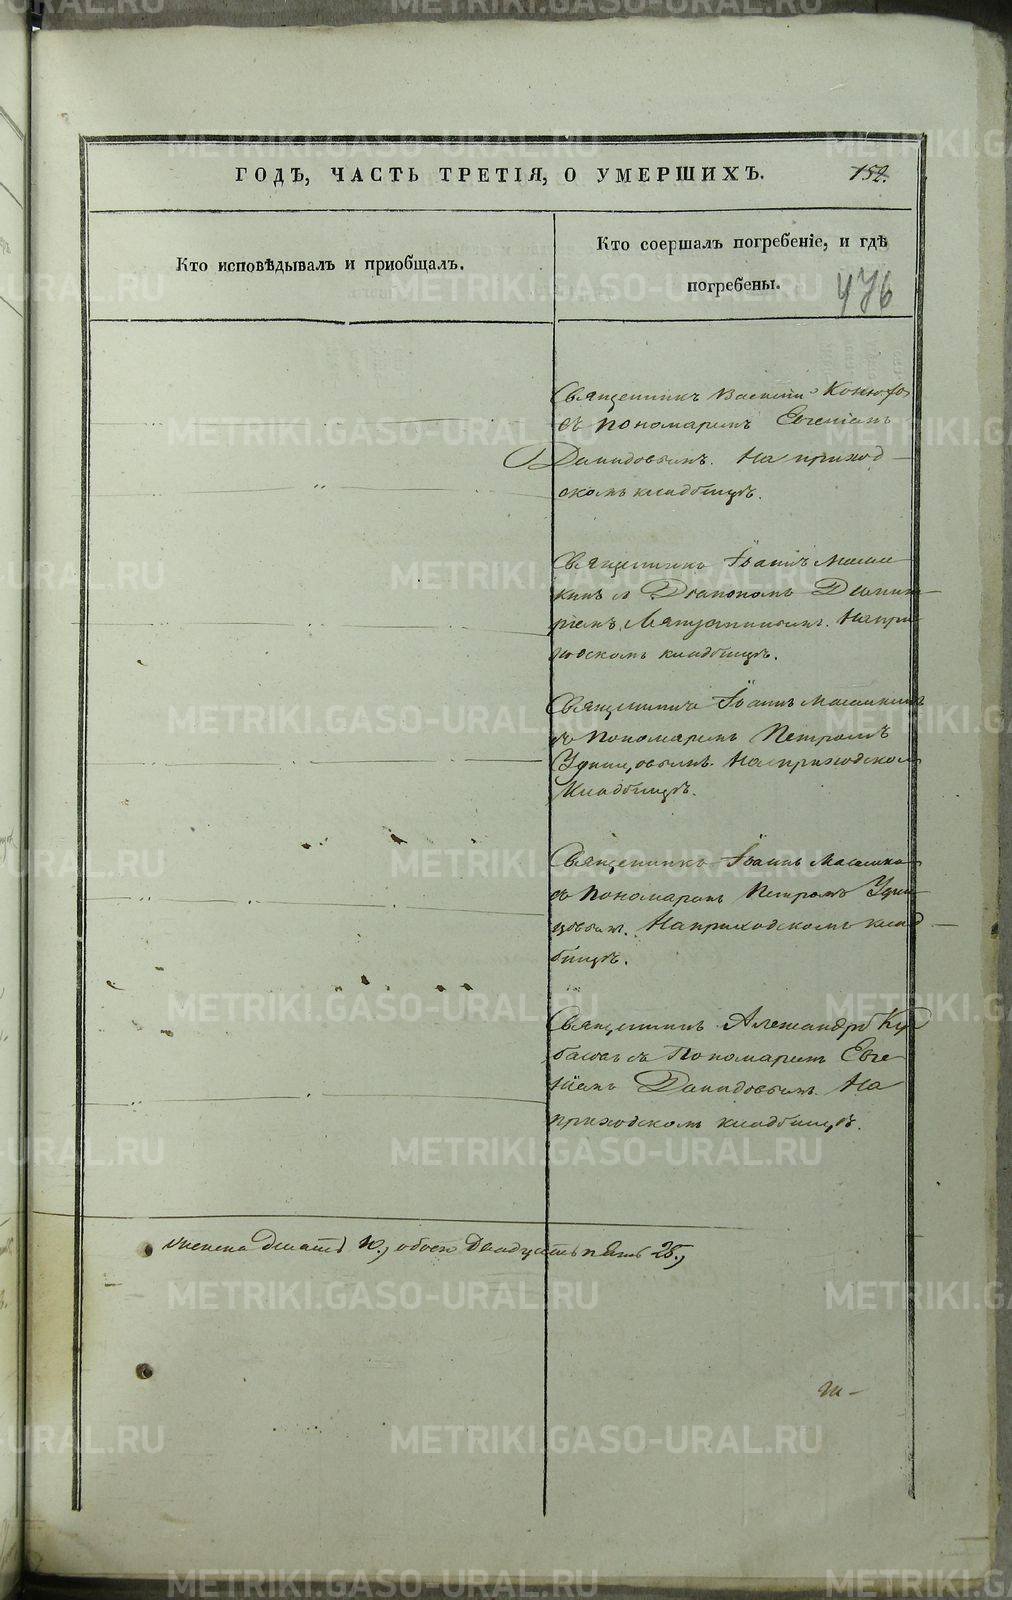 ГОДЪ, ЧАСТЬ ТРЕТІЯ, О УМЕРШИХЪ.
152.
Кто исповѣдывалъ и приобщалъ.
Кто соершалъ погребеніе, и гдѣ
погребены.
476
Священникъ Василій Конюхо
съ пономаремъ Евгеніемъ
Давидовымъ. На приход
скомъ кладбищѣ.
Священникъ Іоаннъ
Діакономъ Димит
ріемъ На при
ходскомъ кладбищѣ.
Священникъ Іоаннъ
съ пономаремъ Петромъ
Удинцовымъ. На приходском
кладбищѣ.
Священникъ Іоаннъ
съ пономаремъ Петромъ Удин
цовым. На приходскомъ клад
бищѣ.
Священникъ Александръ
съ Пономаремъ Евге
ніемъ Давидовымъ. На
приходскомъ кладбищѣ.
обоего двадцать пять 25.,
METRIKI.GASO-URAL.RU